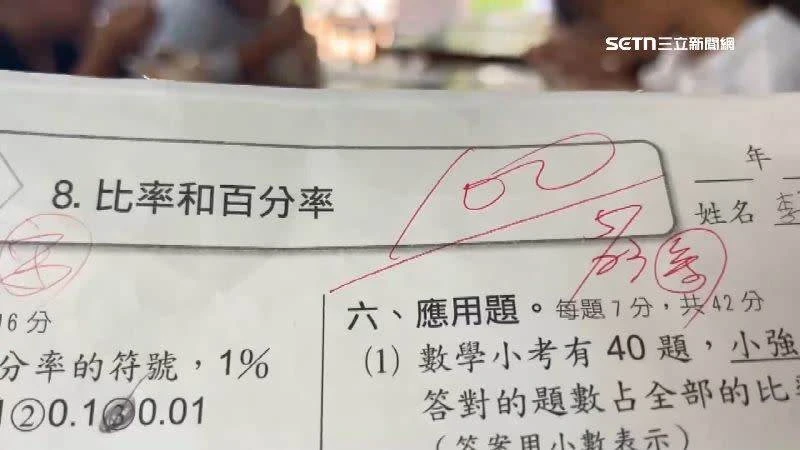 SETN三立新聞網
8. 比率和百分率
100
年
姓名 李
六、應用題。每題7分，共42分
16分
分率的符號，1%
②0.1③0.01
(1) 數學小考有 40 題，小強
答對的題數占全部的比率
(答案用小數表示)